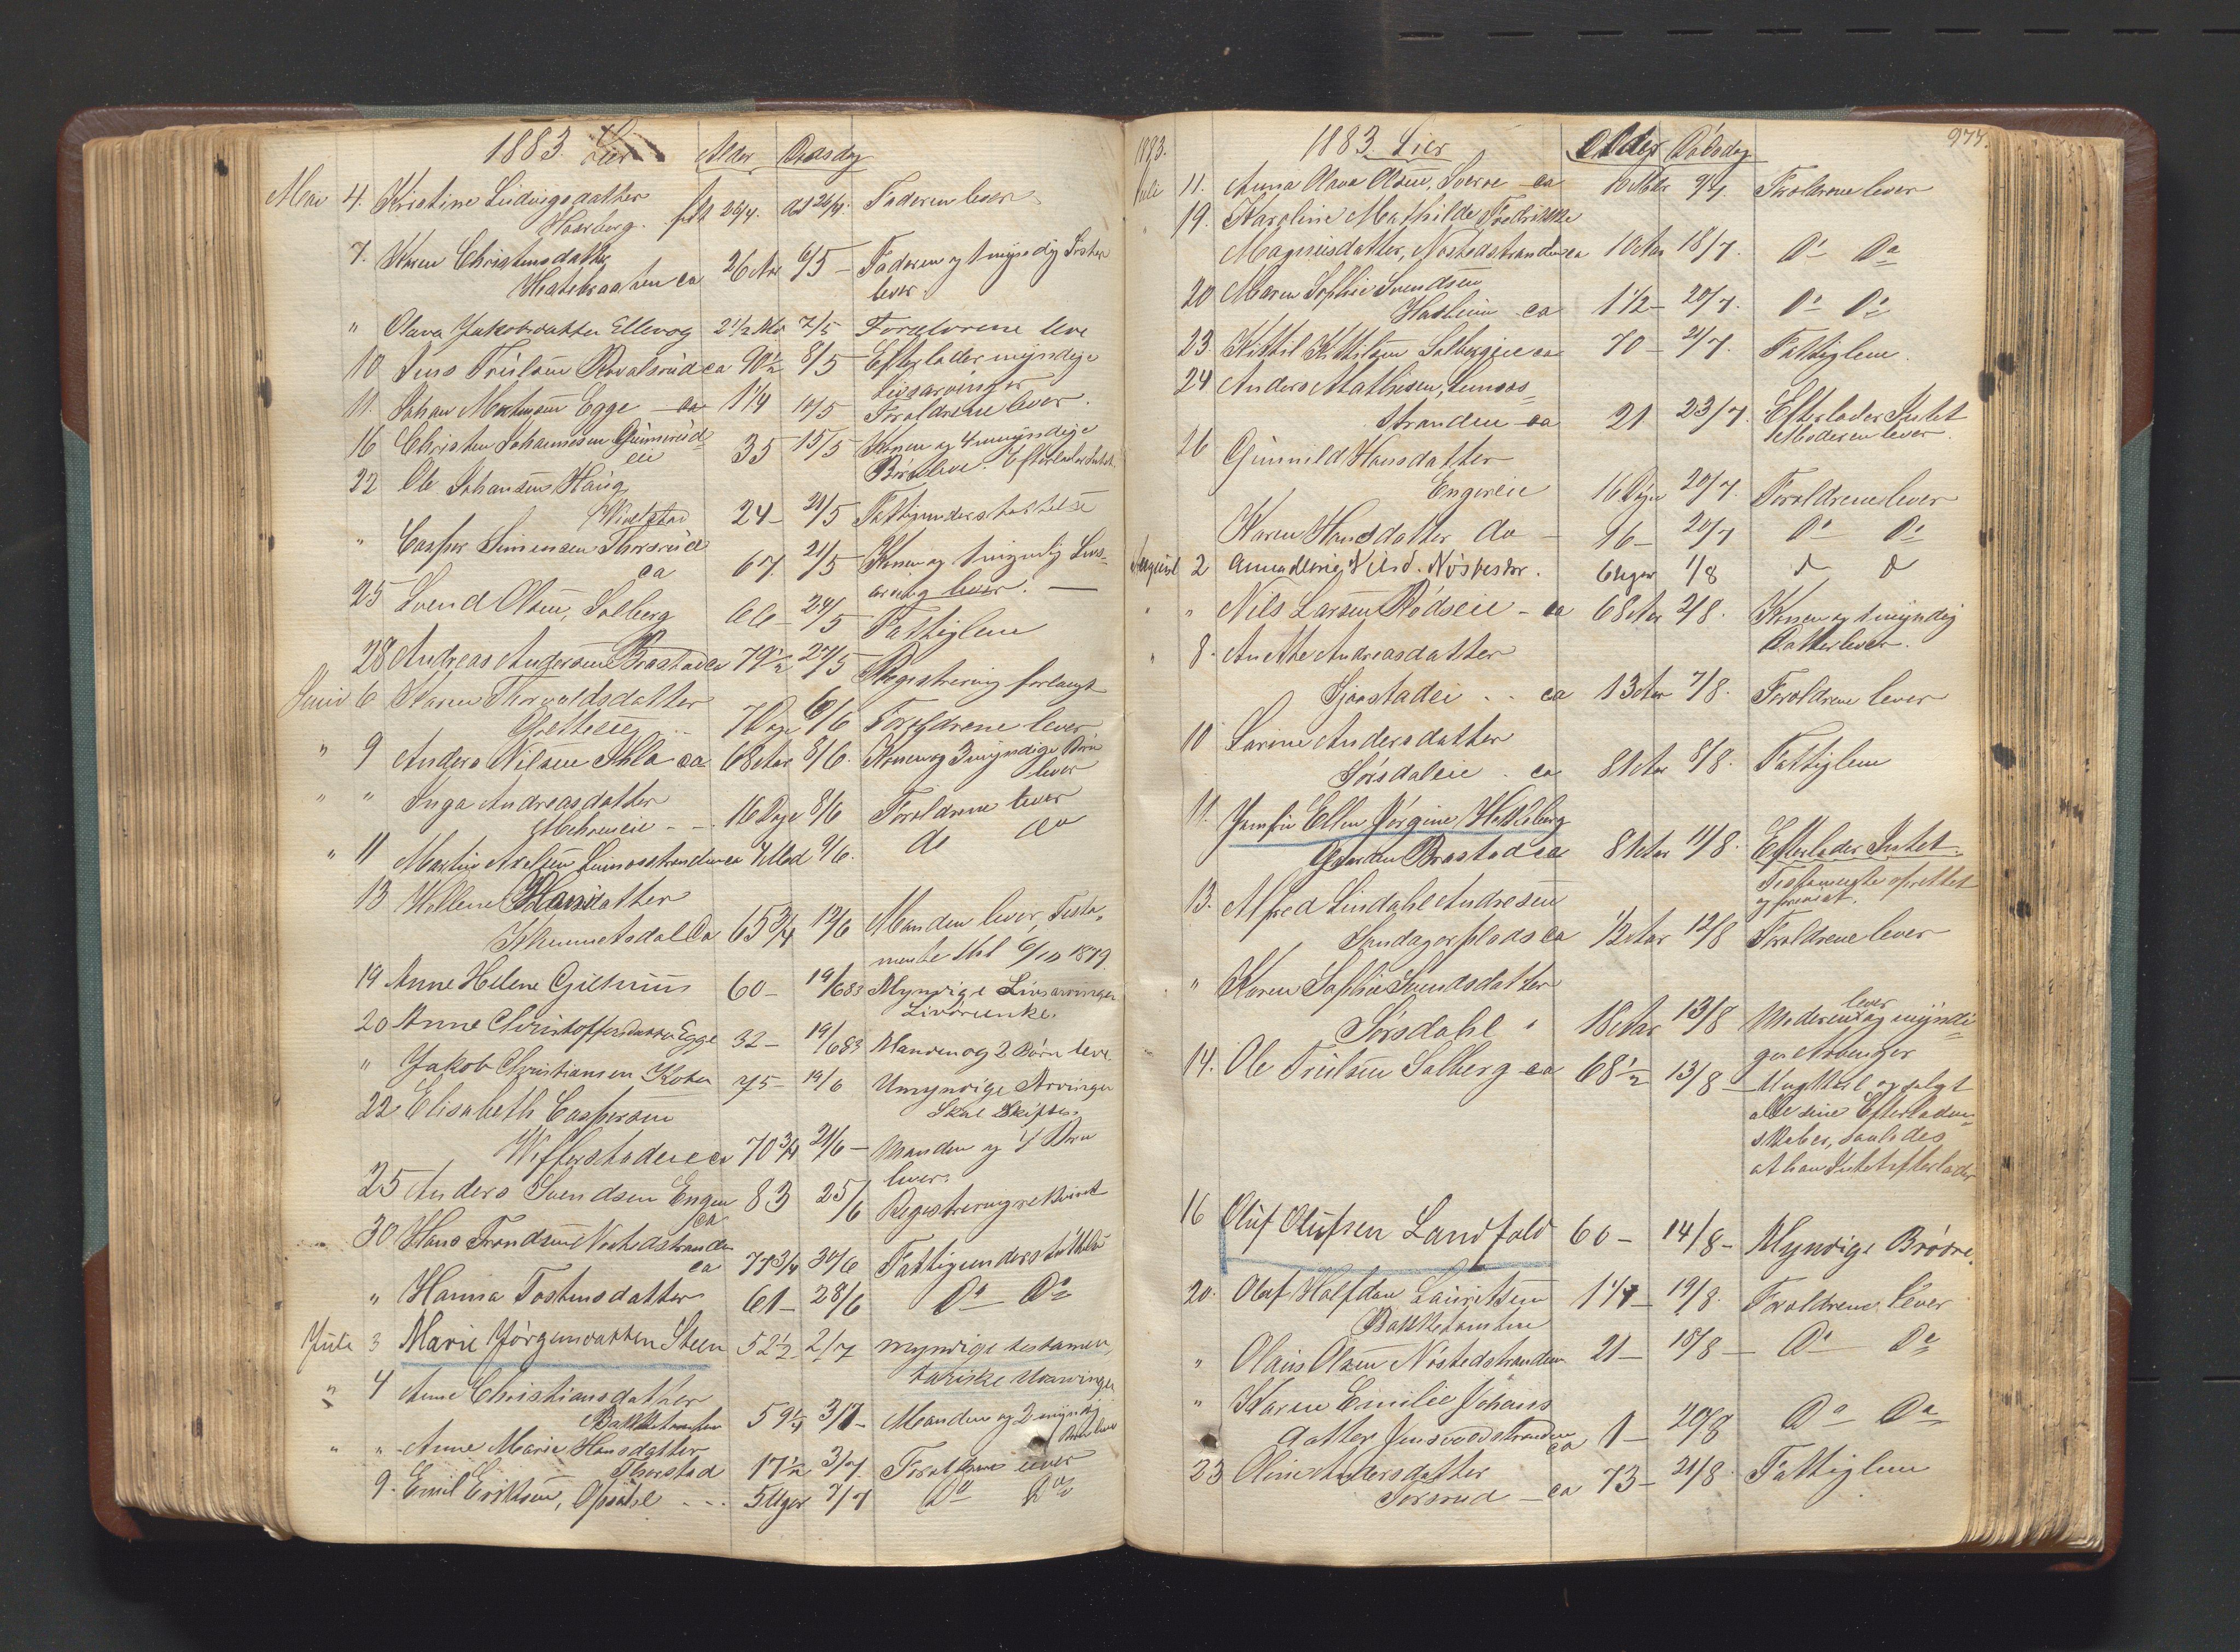 1883. Lier Alder Dødsdag
Mai 4. Kristine Ludvigsdatter
Haarberg. født 26/4. død 26/4. Faderen lever
7. Karen Christensdatter
ca 26 Aar 6/5 – Faderen og 1 myndig Søster
lever.
" Olava Jakobsdatter Ellevog 2 1/2 Md 7/5 Forældrene leve
10 Jens Trulsen ca 90 1/2 8/5 Efterlader myndige
Livsarvinger
11. Johan Martinsen Egge – ca 1 1/4 10/5 Forældrene lever.
16 Christen Johannesen Gunnerud
eie 35 15/5 Konen og 4 umyndige
Børn leve. Efterlader Intet.
22 Ole Johansen Haug
Vivelstad 24 – 21/5 Fattigunderstøttelse
" Casper Simensen Thorsrud
ca 67. 21/5 Konen og 1 myndig Livs=
arving lever. —
25 Svend Olsen, Solberg 66 – 24/5 Fattiglem
28 Andreas Andersen Brastad ca 79 1/2 27/5 Registrering forlangt
Juni 6 Karen Thorvaldsdatter
7 Dage 6/6 Forældrene lever
" 9 Anders Nilsen ca 68 Aar 8/6. Konen og 3 myndige Børn
lever
" " Inga Andreasdatter
Mehreneie - - 16 Dage 8/6 Forældrene lever
" 11 Martin Axelsen Linnesstranden ca 4 Md 9/6. do do
13 Hellene Hansdatter
ca 65 3/4 12/6 Manden lever, Testa=
mente thl 6/10 1879.
19 Anne Helene Gilhuus 60 – 19/6 83 Myndige Livsarvinger
20 Anne Christoffersdatter Egge 32 – 19/6 83 Manden og 2 Børn leve.
" Jakob Christiansen 75 – 19/6 Umyndige Arvinger
Skal Skiftes.
22 Elisabeth Caspersen
Wefferstadeie ca 70 3/4 21/6 – Manden og 4 Børn
lever.
25 Anders Svendsen Engen
ca 83 25/6 Registrering rekviret
30 Hans Trondsen Nøstedstranden
ca 77 3/4 30/6 Fattigunderstøttelse
" Hanna Tostensdatter 61 – 28/6 Do – Do
Juli 3 Marie Jørgensdatter Steen 52 1/2 – 2/7 myndige testamen=
tariske Udarvinger
" 4 Anne Christiansdatter
Bakketomten 59 1/4 3/7 – Manden og 2 myndig
Børn lever
" " – Anne Marie Hansdatter
Thorstad 17 1/2 3/7. Forældrene lever
9. Emil Eriksen, Opsahl - - - 5 Uger 7/7 Do Do
977.
1883. 1883. Lier Alder Dødsdag
Juli 11. Anna Olava Olsen, Sverre – ca 10 Mdr 9/7. Forældrene lever
" 19. Karoline Mathilde Fredrikke
Magnusdatter, Nøstedstranden ca 1 Aar 18/7. Do Do
20 Maren Sophie Svendsen
Haslum ca 1 1/2 – 20/7. Do Do
23 Kittil Kittilsen Solbergeie ca 70 – 21/7. Fattiglem.
24 Anders Mathisen, Linnes=
stranden ca 21 23/7. Efterlader Intet
Moderen lever.
26 Gunnild Hansdatter
Engereie 16 Dage 20/7. Forældrene lever
Karen Hansdatter do – 16 – 20/7 Do Do
August 2 Nøstestr. 6 Uger 1/8 do do
" " Nils Larsen Rødseie – ca 68 Aar 2/8. Konen og 1 myndig
Datter lever.
" 8. Anette Andreasdatter
Gjøstadeie - - ca 13 Aar 7/8. Forældrene lever
10 Karine Andersdatter
Sørsdaleie . ca 81 Aar 8/8. Fattiglem
11. Jomfru Ellen Jørgine Hæsleberg
Gaarden Brastad ca 81 Aar 11/8. Efterlader Intet.
Testamente oprettet
13. Alfred Lindahl Andresen
Sandagerplads ca 1/2 Aar 12/8 Forældrene lever
" Karen Sophie Svendsdatter
Sørsdahl " 18 Aar 13/8 Moderen lever og myndi=
ge Arvinger
14. Ole Trulsen Solberg ca 68 1/2 13/8 – Ungkarl og solgt
alle sine Efterladen=
skaber, saaledes
at han Intet efterlader
16 Oluf Olufsen Landfald 60 – 14/8 – Myndige Brødre.
20. Olaf Halfdan Lauritsen
Bakketomten 1 1/4 – 19/8. Forældrene lever
" Olaus Olsen Nøstedstranden 21 – 18/8 – Do Do
" Karen Emilie Johans
datter ca 1 – 20/8 Do Do
23 Oline Andersdatter
Torsrud – ca 73 – 21/8. Fattiglem